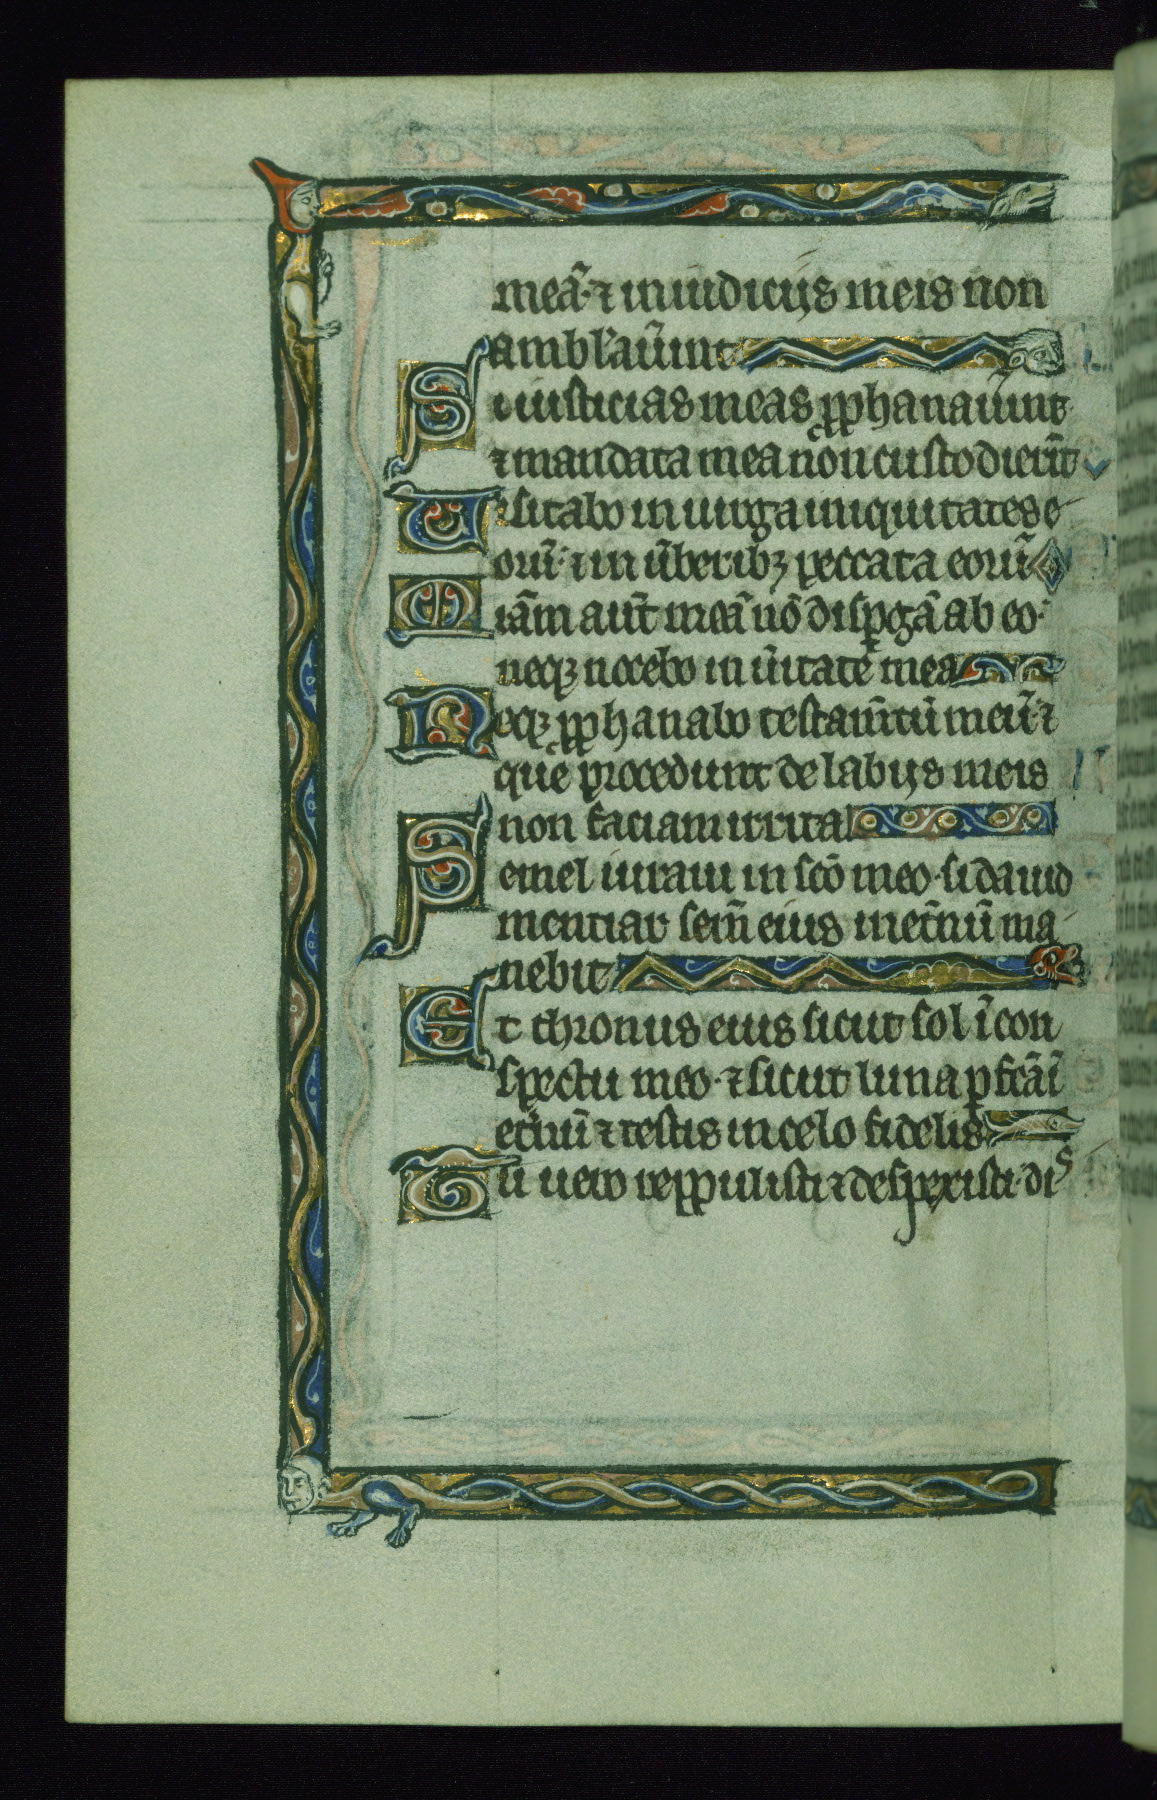 meã· ⁊ in iudicijs meis non
ambl'aũint
Si iusticias meas ꝓphanaũint·
⁊ mandata mea non custodierĩt
Uisitabo in uirga iniquitates e
orũ· ⁊ in ũberibꝫ peccata eorũ
Miãm aut̃ meã nõ dispgã ab eo·
neqꝫ nocebo in ũitate mea
Neqꝫ ꝓphanabo testam̃tũ meũ· ⁊
que procedunt de labijs meis
non faciam irrita
Semel iuraui in sc̃o meo· si dauid
mentiar sem̃ eius inet̃nũ ma
nebit
Et thronus eius sicut sol ĩ con
spectu meo· ⁊ sicut luna ꝑfc̃a ĩ
et̃nũ ⁊ testis in celo fidelis
Tu uero reppulisti ⁊ despexisti· dis